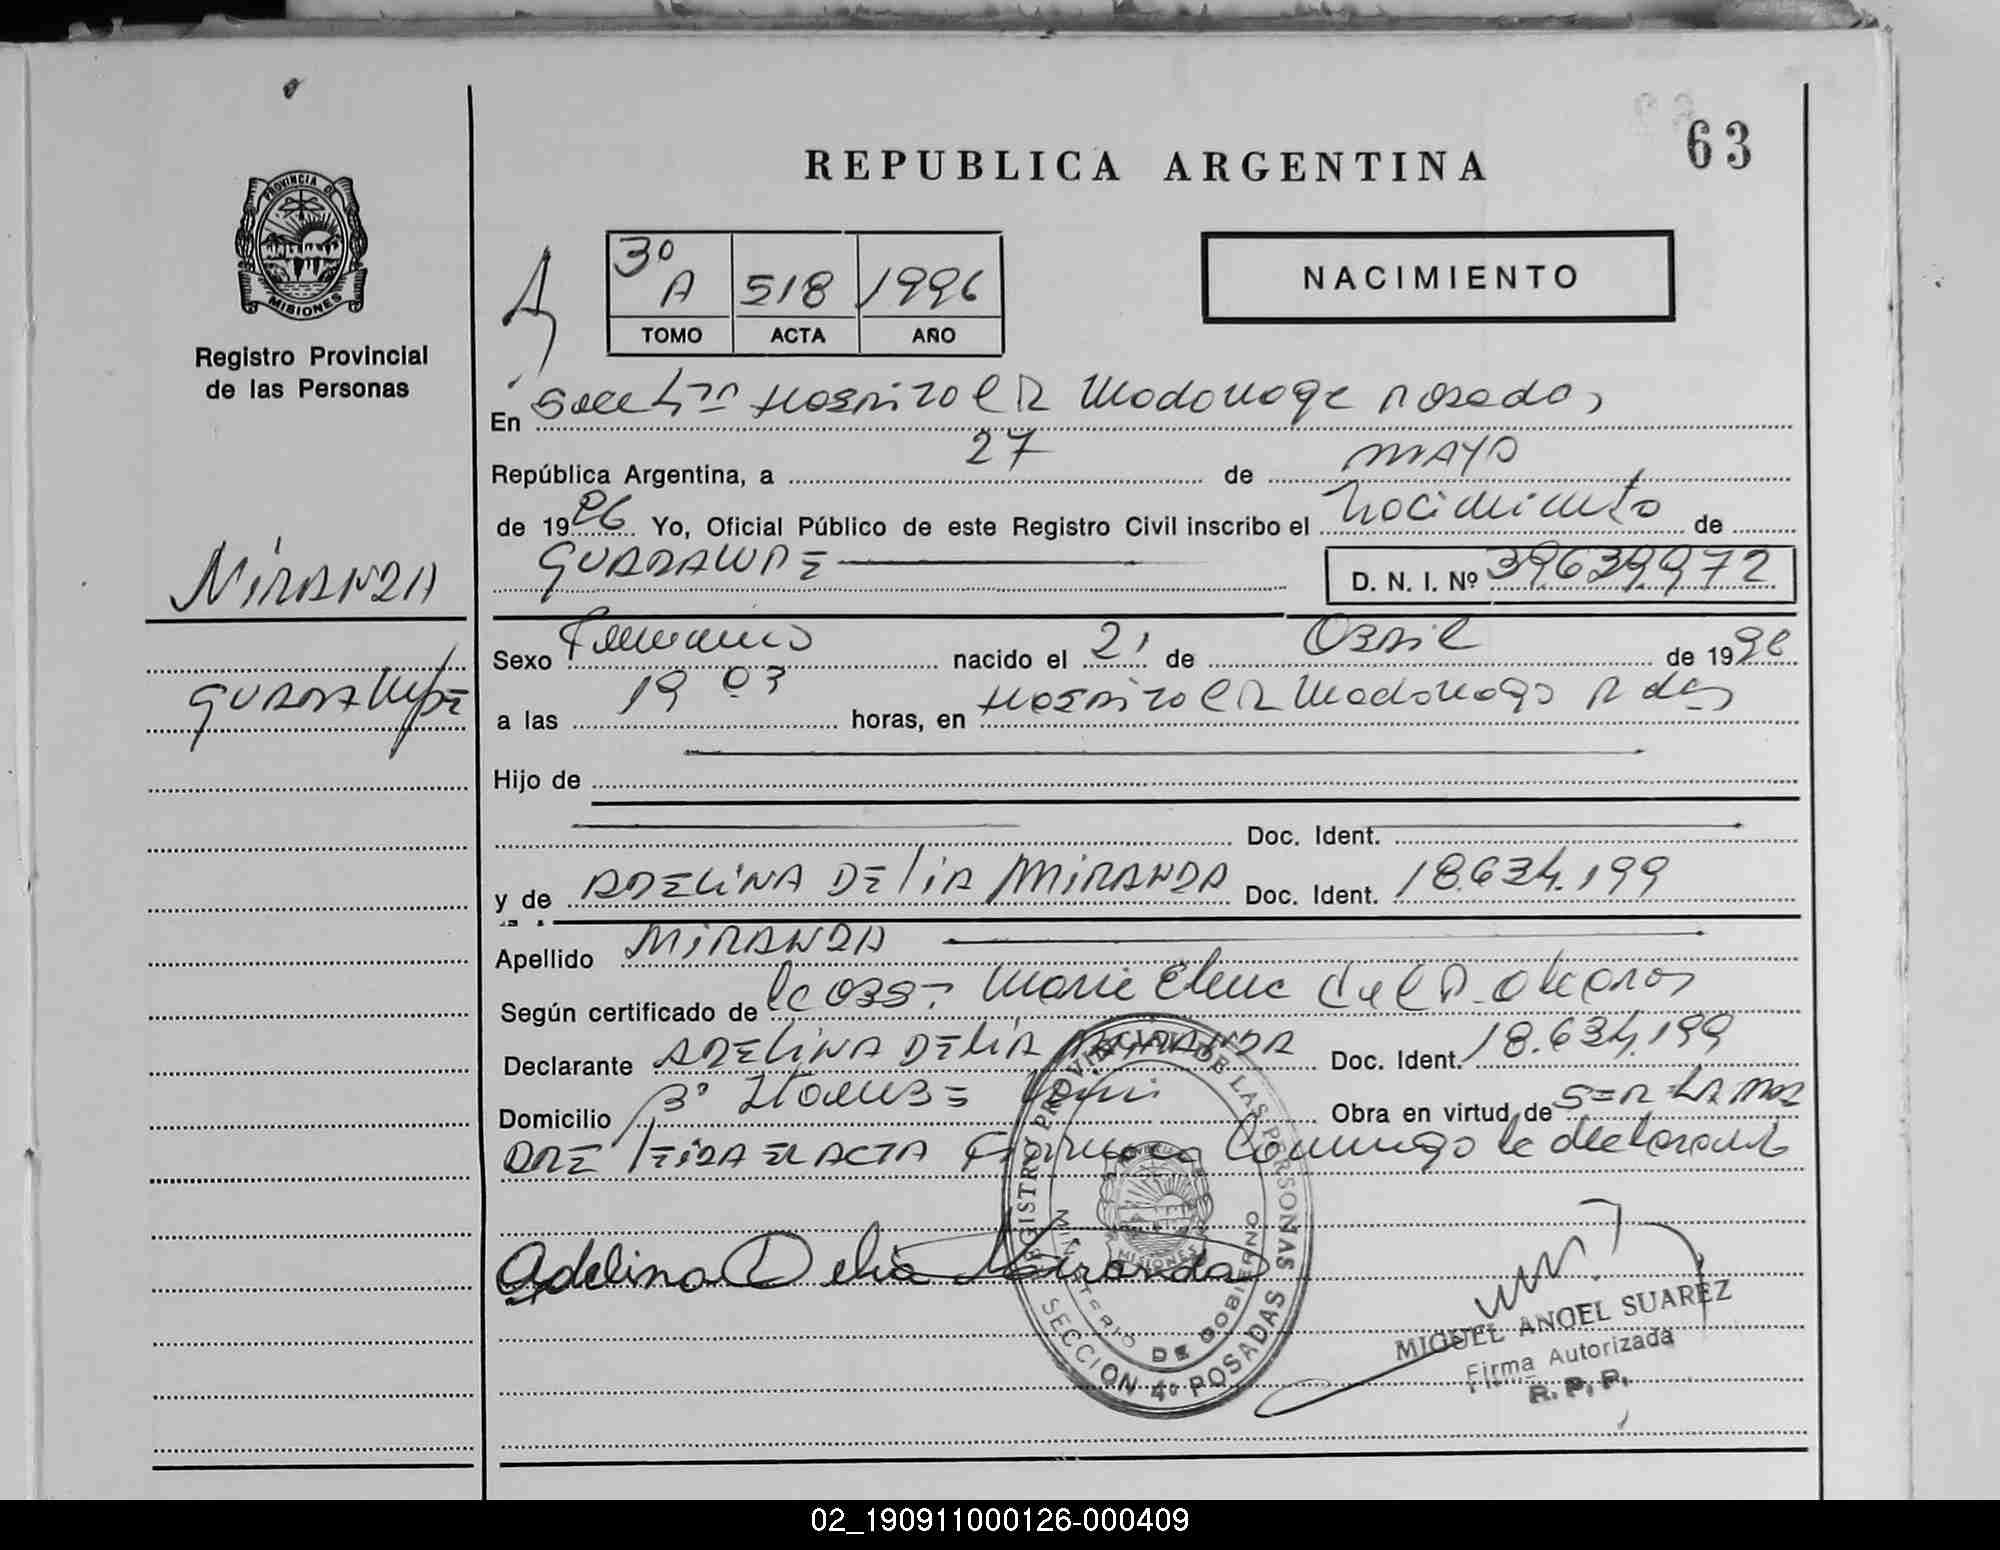 63
REPUBLICA ARGENTINA
PROVINCIA DE
MISIONES
Registro Provincial
de las Personas
3º A 518 1996
TOMO ACTA AÑO
NACIMIENTO
En Hospital R Madariaga Posadas
República Argentina, a 27 de MAYO
de 1996 Yo, Oficial Público de este Registro Civil inscribo el nacimiento de
GUADALUPE D. N. I. Nº 39639972
MIRANDA
GUADALUPE
Sexo Femenino nacido el 21 de Abril de 1996
a las 19 03 horas, en Hospital R Madariaga Pdas
Hijo de
Doc. Ident.
y de ADELINA DELIA MIRANDA Doc. Ident. 18.634.199
Apellido MIRANDA
Según certificado de la Obst. Maria Elena del P.
Declarante ADELINA DELIA MIRANDA Doc. Ident. 18.634.199
Domicilio Bº Obra en virtud de SER LA MA
DRE LEIDA EL ACTA Firma Conmigo la declarante
Adelina Delia Miranda
REGISTRO PROVINCIAL DE LAS PERSONAS
MINISTERIO DE GOBIERNO
MISIONES
SECCION 4º POSADAS
MIGUEL ANGEL SUAREZ
Firma Autorizada
R. P. P.
02_190911000126-000409